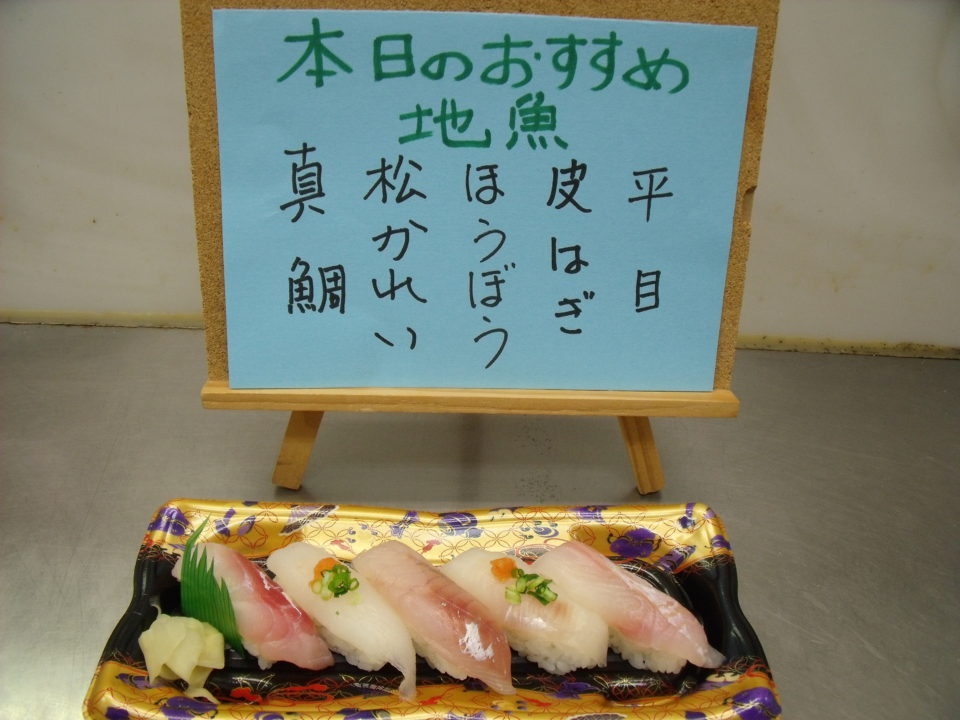 本日のおすすめ
地魚
平目
皮はぎ
ほうぼう
松かれい
真鯛